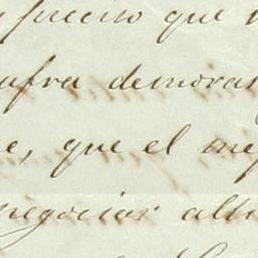 preciso que
sufra demoras
e, que el mej
negociar alli